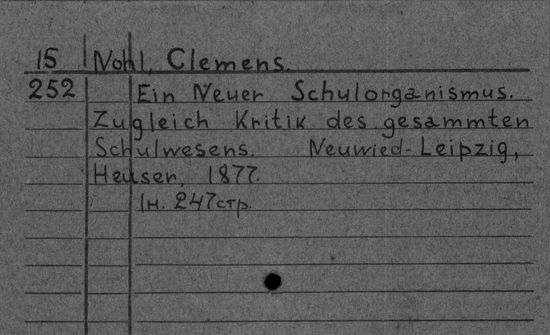 15 Nohl, Clemens.
252 Ein Neuer Schulorganismus.
Zugleich Kritik des gesammten
Schulwesens. Neuwied-Leipzig,
Heuser, 1877.
1н. 247стр.